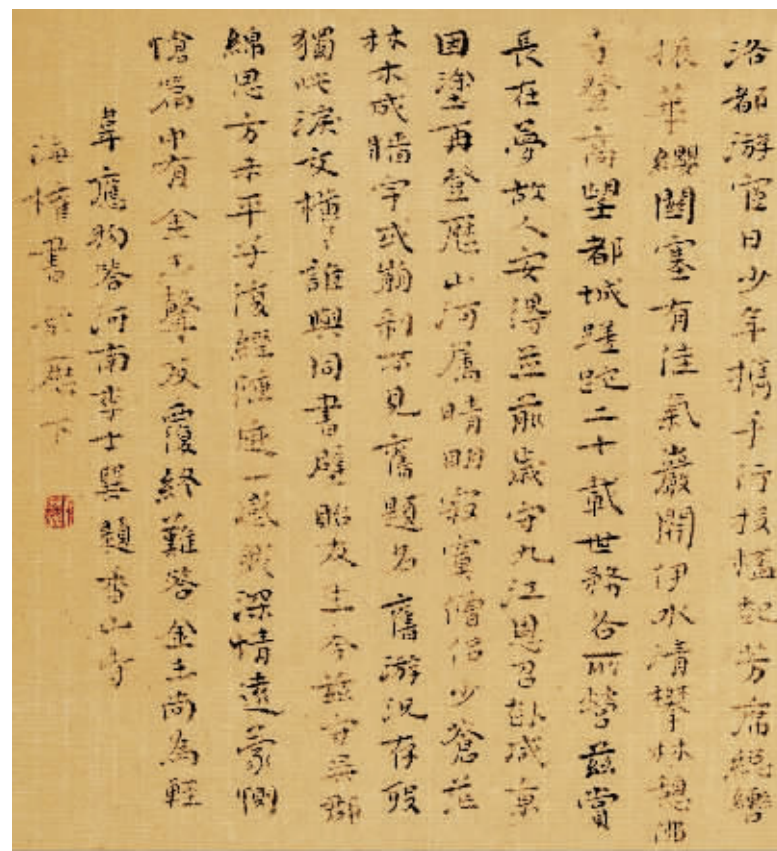 洛都游宦日少年攜手行投杯起芳席總轡
振華纓關塞有佳氣巖開伊水清攀林憩佛
寺登高望都城蹉跎二十載世務各所營茲賞
長在夢故人安得並前歲守九江恩召赴咸京
因塗再登歷山河屬晴明寂寞僧侶少蒼茫
林木成牆宇或崩剝不見舊題名舊游況存歿
獨此淚交橫々誰與同書壁貽友生今茲守吳郡
綿思方未平子復經陟一感我深情遠蒙惻
愴篇中有金玉聲反覆終難答金玉尚為輕
韋應物答河南李士巽題香山寺
海權書於歷下